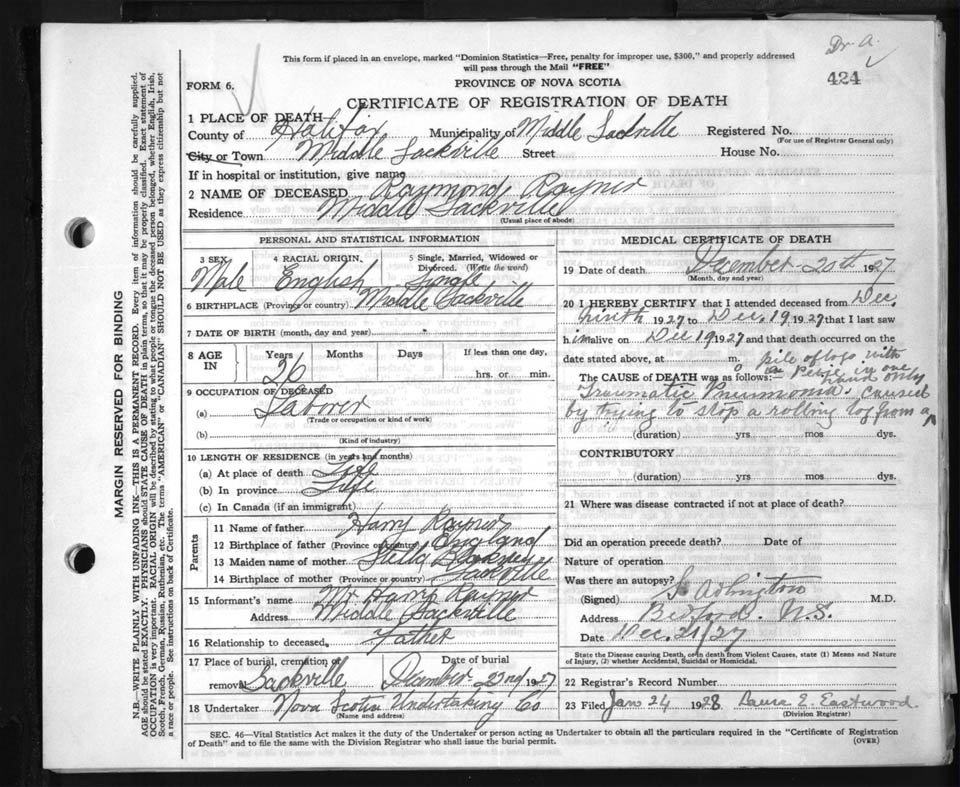 Dr. A.
424
This form if placed in an envelope, marked "Dominion Statistics—Free, penalty for improper use, $300," and properly addressed
will pass through the Mail "FREE"
FORM 6.
PROVINCE OF NOVA SCOTIA
CERTIFICATE OF REGISTRATION OF DEATH
1 PLACE OF DEATH
County of Halifax Municipality of Middle Sackville Registered No.
(For use of Registrar General only)
City or Town Middle Sackville Street House No.
If in hospital or institution, give name
2 NAME OF DECEASED Raymond Rayner
Residence Middle Sackville
(Usual place of abode)
PERSONAL AND STATISTICAL INFORMATION
3 SEX 4 RACIAL ORIGIN. 5 Single, Married, Widowed or
Divorced. (Write the word)
Male English Single
6 BIRTHPLACE (Province or country) Middle Sackville
7 DATE OF BIRTH (month, day and year)
8 AGE IN Years Months Days If less than one day,
26 hrs. or min.
9 OCCUPATION OF DECEASED
(a) Laborer
(Trade or occupation or kind of work)
(b)
(Kind of industry)
10 LENGTH OF RESIDENCE (in years and months)
(a) At place of death Life
(b) In province Life
(c) In Canada (if an immigrant)
Parents
11 Name of father Harry Rayner
12 Birthplace of father (Province or country) England
13 Maiden name of mother
14 Birthplace of mother (Province or country) Sackville
15 Informant's name Mr Harry Rayner
Address Middle Sackville
16 Relationship to deceased Father
17 Place of burial, cremation or Date of burial
removal Sackville December 22nd 1927
18 Undertaker Nova Scotia Undertaking Co
(Name and address)
MEDICAL CERTIFICATE OF DEATH
19 Date of death December 20th 1927
(Month, day and year)
20 I HEREBY CERTIFY that I attended deceased from Dec.
ninth 1927 to Dec. 19 1927 that I last saw
him alive on Dec 19 1927 and that death occurred on the
date stated above, at m.
pile of logs with
The CAUSE of DEATH was as follows:
a Peavie in one
hand only
Traumatic Pneumonia. Caused
by trying to stop a rolling log from a
(duration) yrs mos dys.
CONTRIBUTORY
(duration) yrs mos dys.
21 Where was disease contracted if not at place of death?
Did an operation precede death? Date of
Nature of operation
Was there an autopsy?
(Signed) M.D.
Address Bedford. N.S.
Date Dec. 21/27
State the Disease causing Death, or in death from Violent Causes, state (1) Means and Nature
of Injury, (2) whether Accidental, Suicidal or Homicidal.
22 Registrar's Record Number
23 Filed Jan 24 1928 Laura E. Eastwood
(Division Registrar)
SEC. 46—Vital Statistics Act makes it the duty of the Undertaker or person acting as Undertaker to obtain all the particulars required in the "Certificate of Registration
of Death" and to file the same with the Division Registrar who shall issue the burial permit.
(OVER)
MARGIN RESERVED FOR BINDING
N.B.—WRITE PLAINLY WITH UNFADING INK—THIS IS A PERMANENT RECORD. Every item of information should be carefully supplied.
AGE should be stated EXACTLY. PHYSICIANS should STATE CAUSE OF DEATH in plain terms, so that it may be properly classified. Exact statement of
OCCUPATION is very important. RACIAL ORIGIN will be described by stating to what people or tongue the deceased person belonged, whether English, Irish,
Scotch, French, German, Russian, Ruthenian, etc. The terms "AMERICAN" or "CANADIAN" SHOULD NOT BE USED as they express citizenship but not
a race or people. See instructions on back of Certificate.